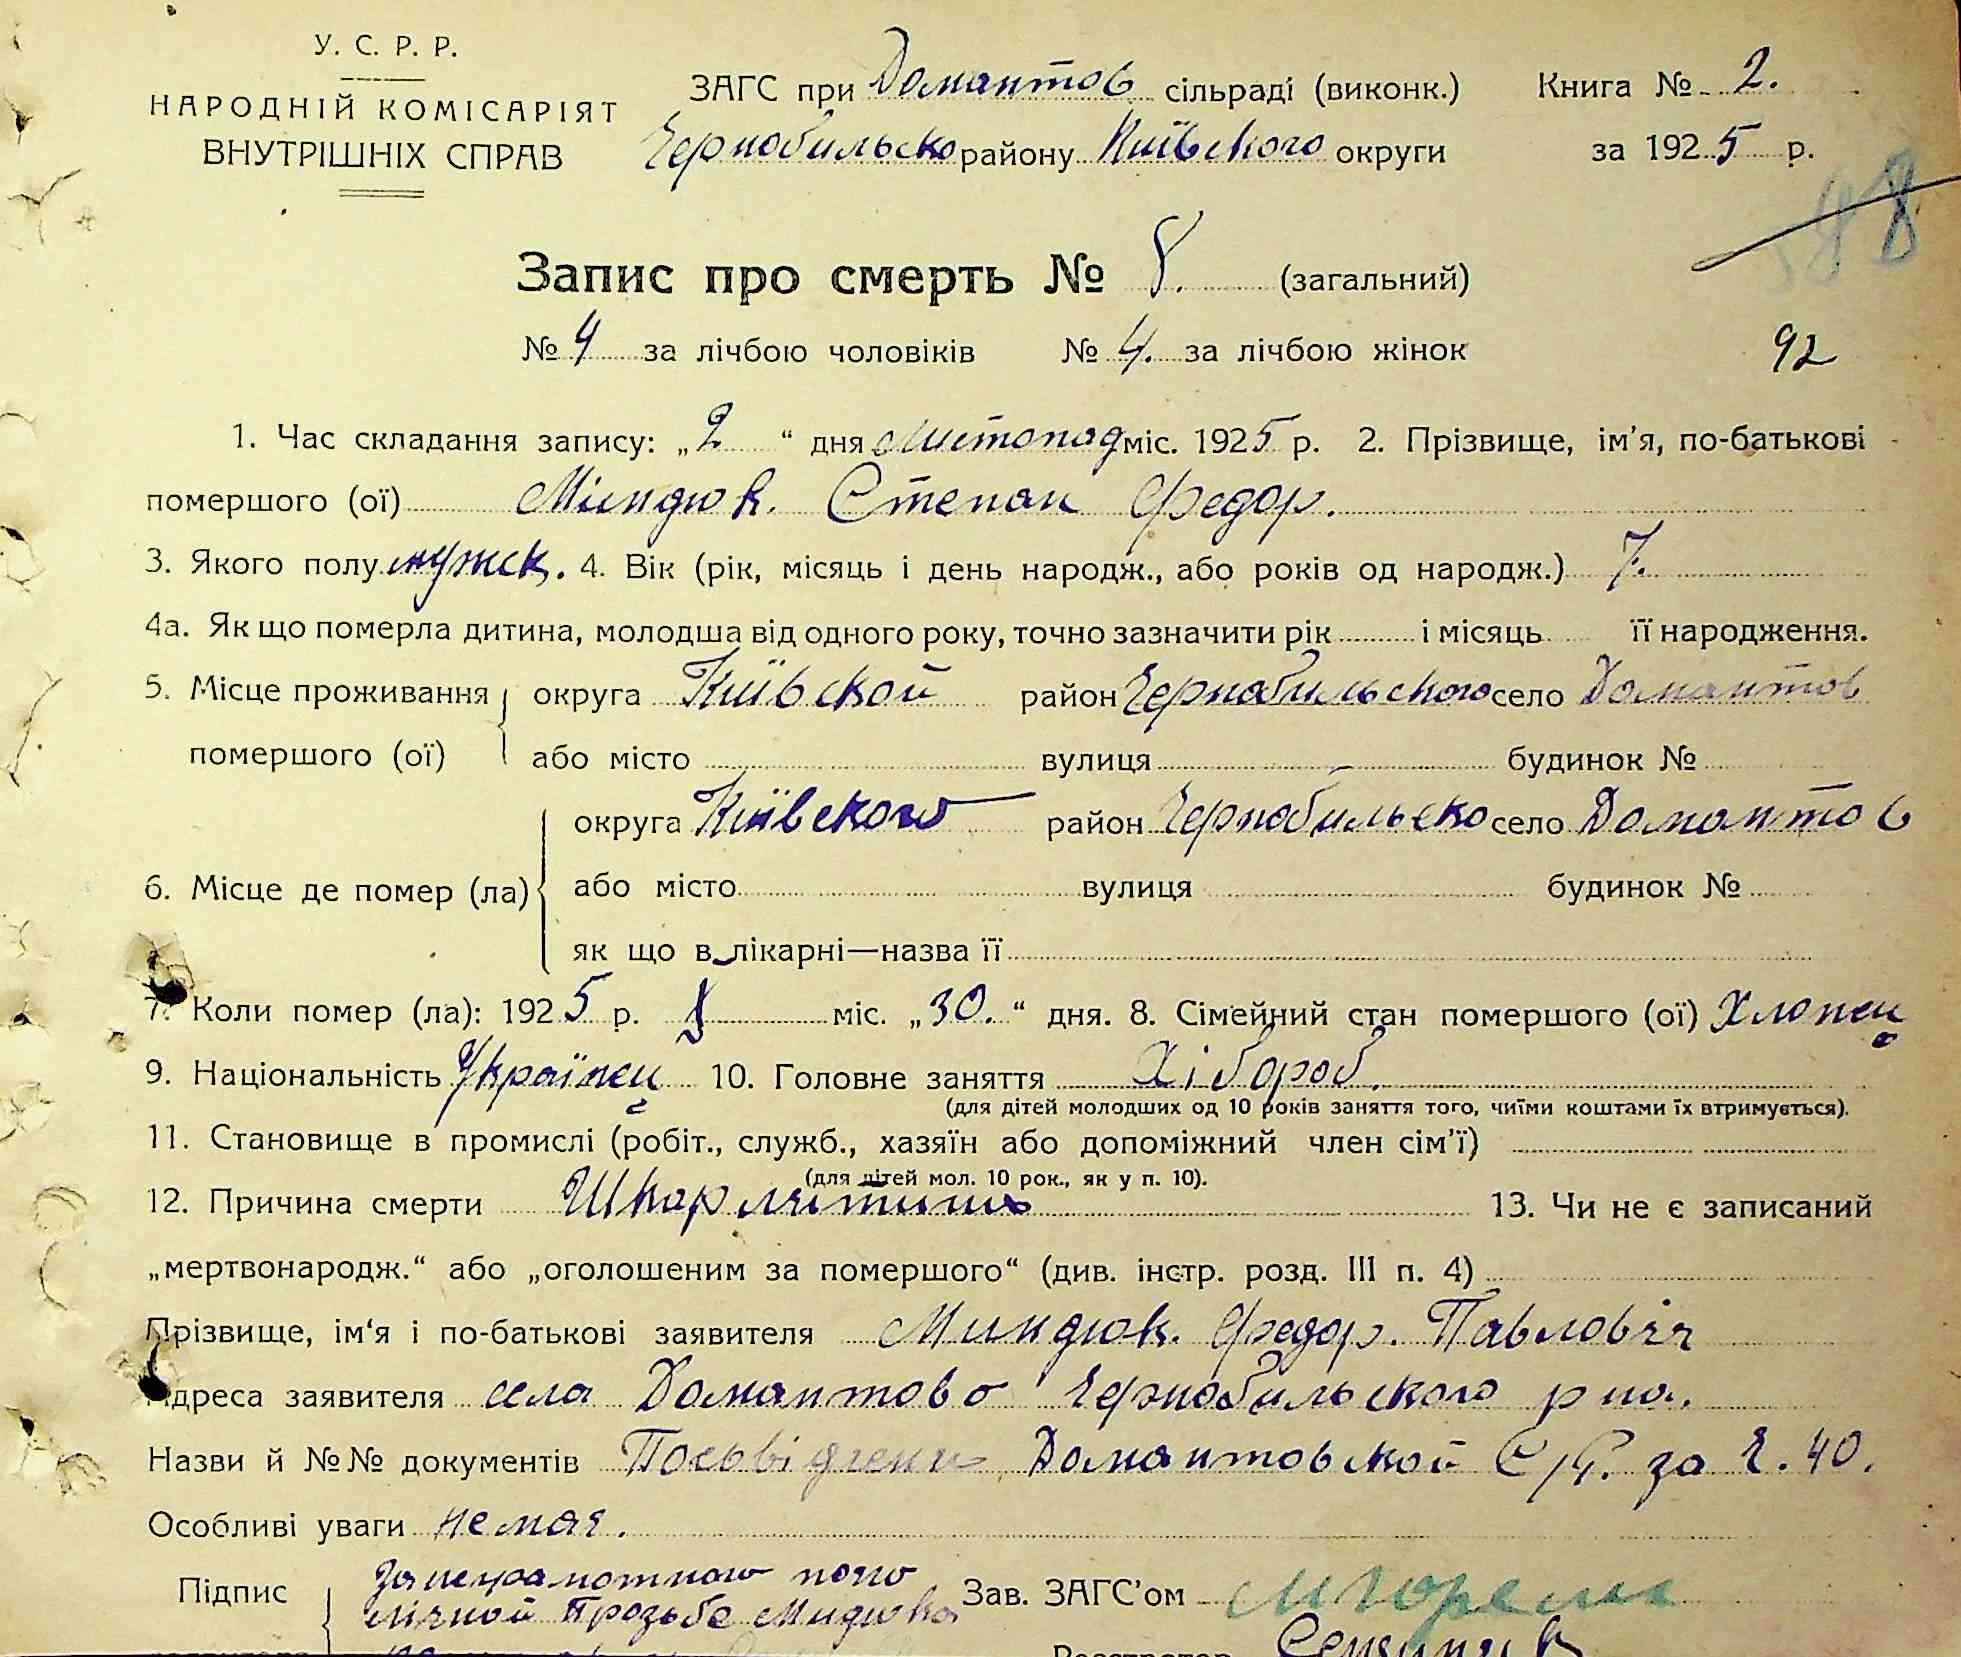 У. С. Р. Р.
НАРОДНІЙ КОМІСАРІЯТ
ВНУТРІШНІХ СПРАВ
ЗАГС при Домантов сільраді (виконк.)
Чернобильско району Київського округи
Книга № 2.
за 1925 р.
88
Запис про смерть № 8. (загальний)
№ 4 за лічбою чоловіків № 4. за лічбою жінок
92
1. Час складання запису: „2“ дня Листопад міс. 1925 р. 2. Прізвище, ім’я, по-батькові
помершого (ої) Миндюк. Степан Федор.
3. Якого полу мужск. 4. Вік (рік, місяць і день народж., або років од народж.) 7.
4а. Як що померла дитина, молодша від одного року, точно зазначити рік і місяць її народження.
5. Місце проживання помершого (ої) округа Київской район Чернобильского село Домантов
або місто вулиця будинок №
6. Місце де помер (ла) округа Київского район Чернобильско село Домантов
або місто вулиця будинок №
як що в лікарні—назва її
7. Коли помер (ла): 1925 р. міс. „30.“ дня. 8. Сімейний стан помершого (ої) Хлопец
9. Національність Українец 10. Головне заняття Хібороб.
(для дітей молодших од 10 років заняття того, чиїми коштами їх втримується).
11. Становище в промислі (робіт., служб., хазяїн або допоміжний член сім’ї)
(для дітей мол. 10 рок., як у п. 10).
12. Причина смерти 13. Чи не є записаний
„мертвонародж.“ або „оголошеним за помершого“ (див. інстр. розд. III п. 4)
Прізвище, ім‘я і по-батькові заявителя Миндюк. Федор. Павловіч
Адреса заявителя села Домантово Чернобильского рна.
Назви й №№ документів Посьвідчени Домантовской С/Р. за Ч. 40.
Особливі уваги немая.
Підпис
За неграмотного його
лічной прозьбе Мидюка
Зав. ЗАГС’ом
Реєстратор